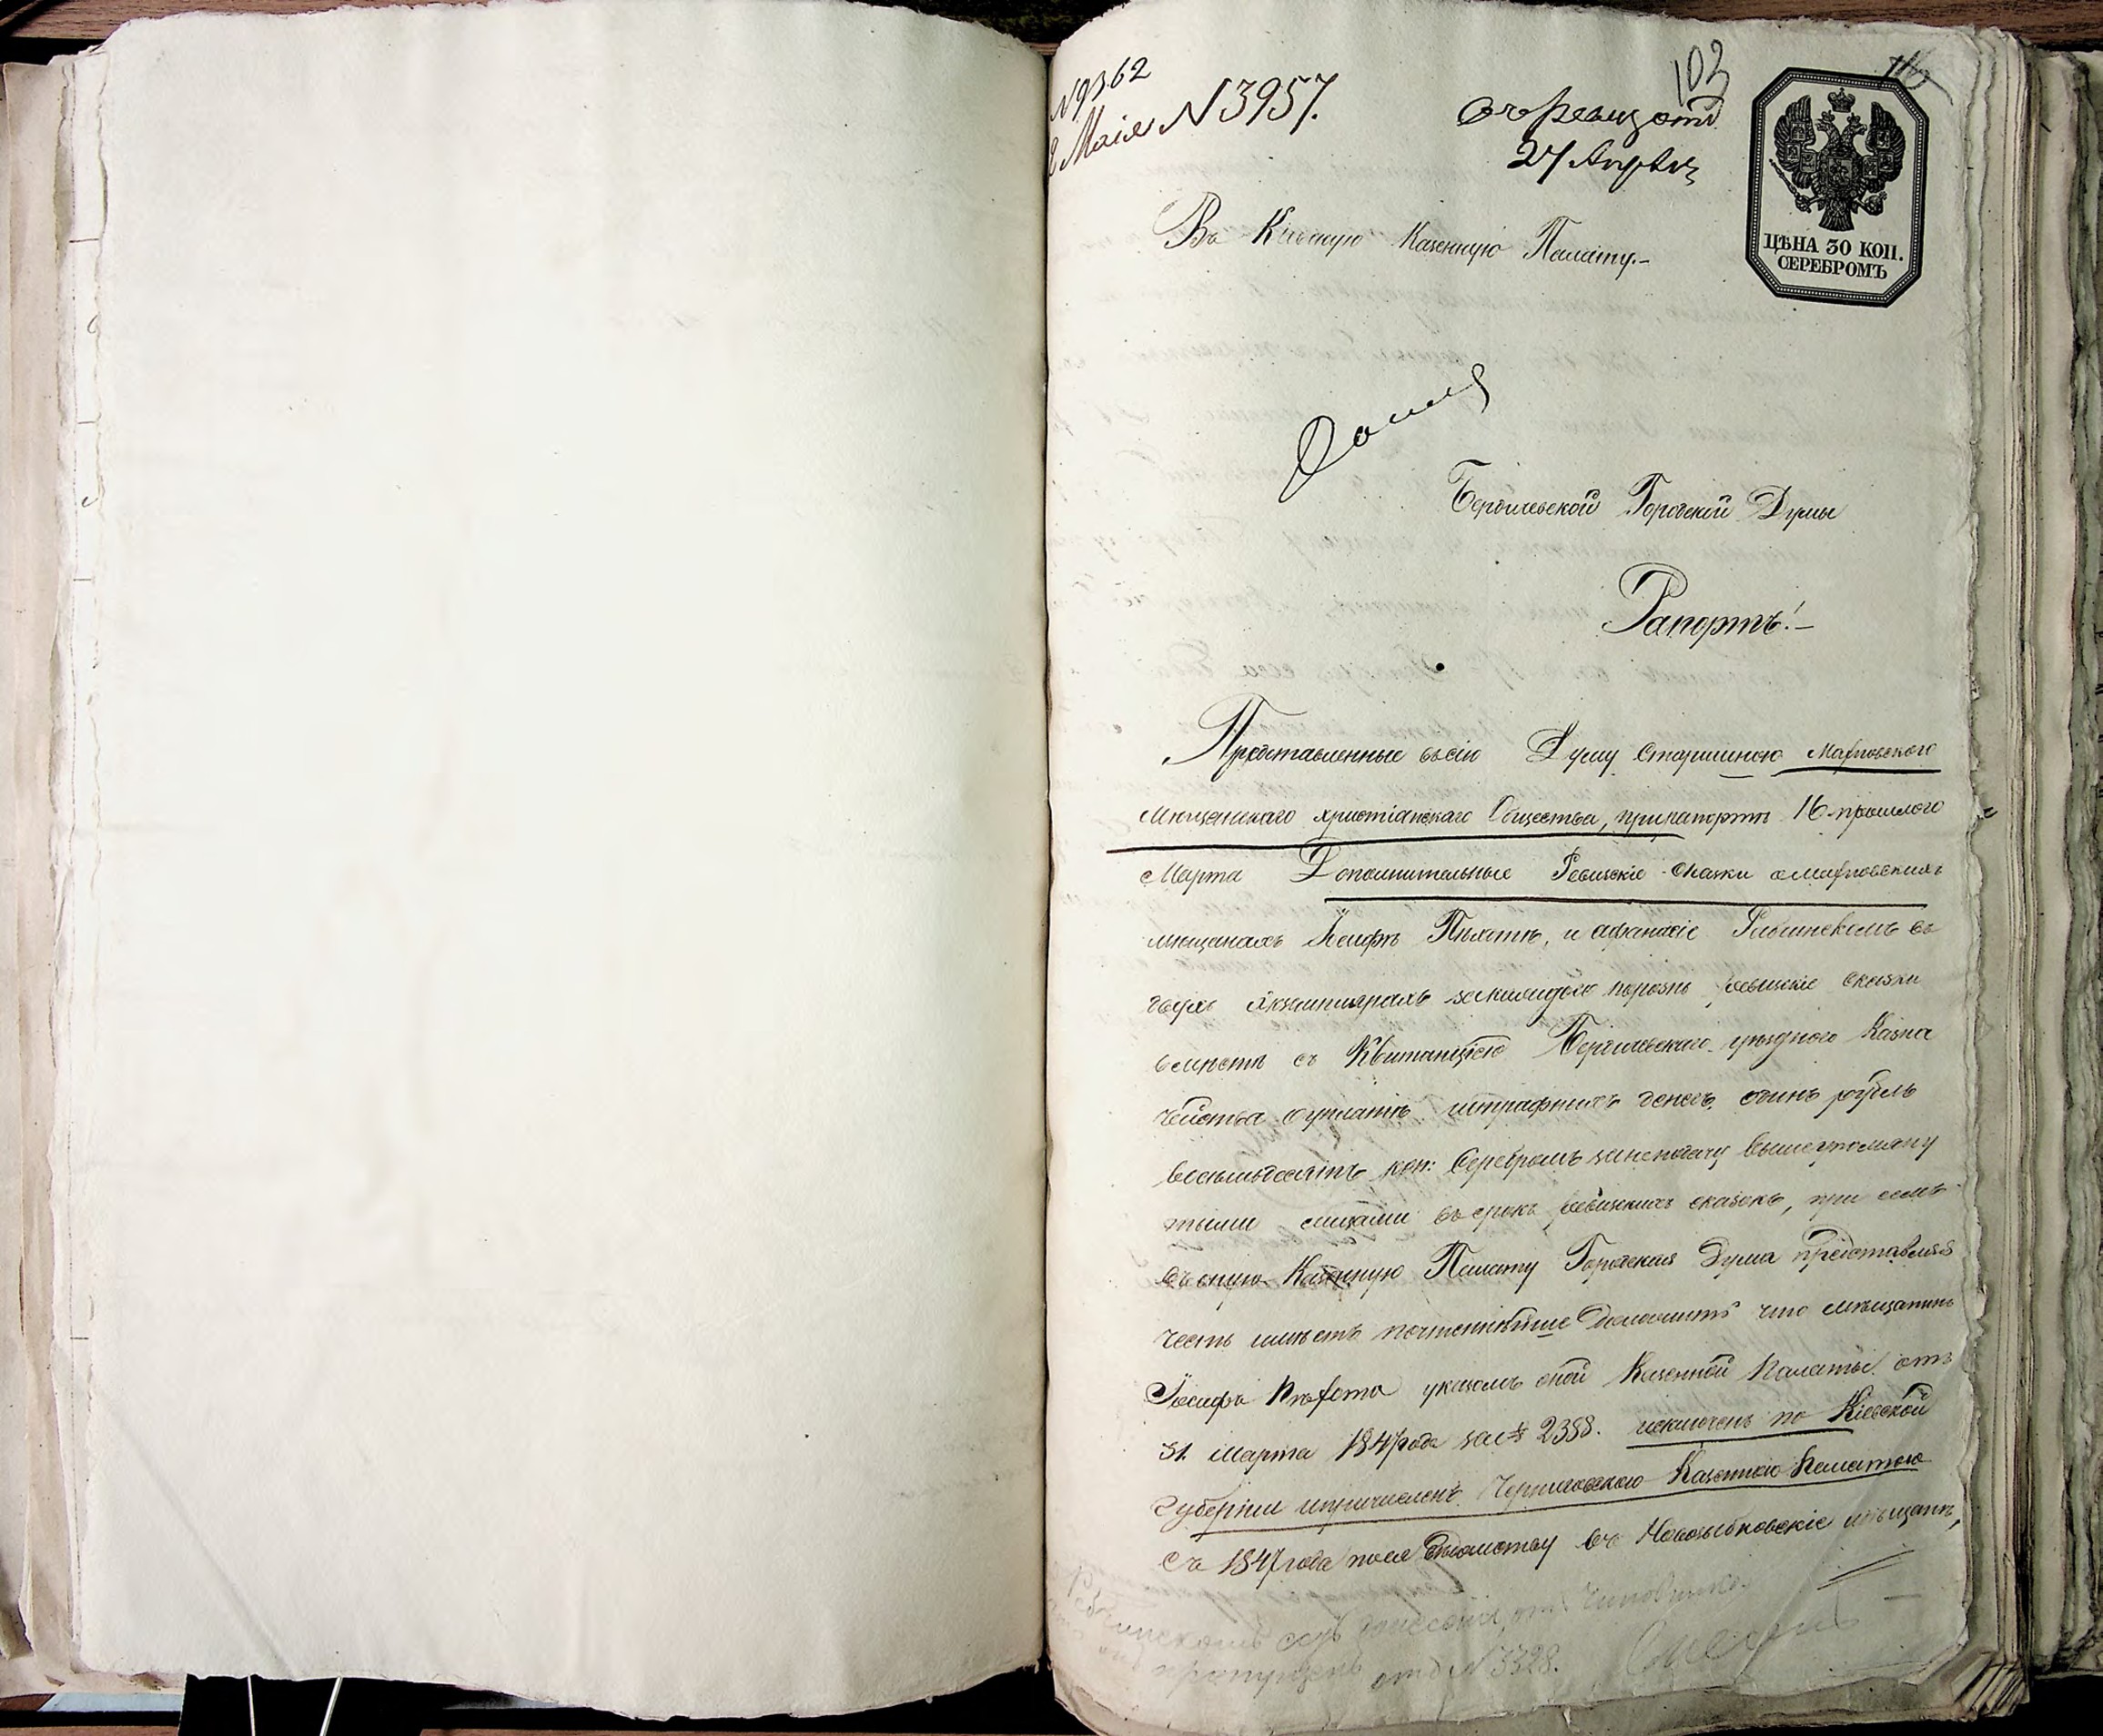 N 9362
Маія N 3957.
103
27 Апрѣля
ЦѢНА 30 КОП.
СЕРЕБРОМЪ
Въ Кіевскую Казенную Палату.-
Бердичевской Городской Думы
Рапортъ!-
Представленные въ сію Думу Старшиною Махновского
мѣщанскаго христіанскаго Общества, при рапортѣ 16 прошлого
Марта Дополнительные Ревизскіе Сказки о Махновскихъ
мѣщанахъ Іосифѣ и Афанасіе въ
двухъ экземплярахъ порознь ревизскіе сказки
вмѣстѣ съ Квитанціею Бердичевскаго уѣздного Казна
чейства о уплатѣ штрафныхъ денегъ одинъ рубль
восемьдесятъ коп: Серебромъ за неподачу вышеупомяну
тыми лицами въ срокъ ревизскихъ сказокъ, при семъ
въ оную Казенную Палату Городская Дума представляя
честь имѣетъ почтеннѣйше доложить что мѣщанинъ
Іосифъ указомъ оной Казенной Палаты отъ
31. Марта 1847 года за № 2388. исключенъ по Кіевской
Губерніи и причисленъ Черниговскою Казенною Палатою
съ 1847 года въ Новозыбковскіе мѣщане,
отд N 3328.